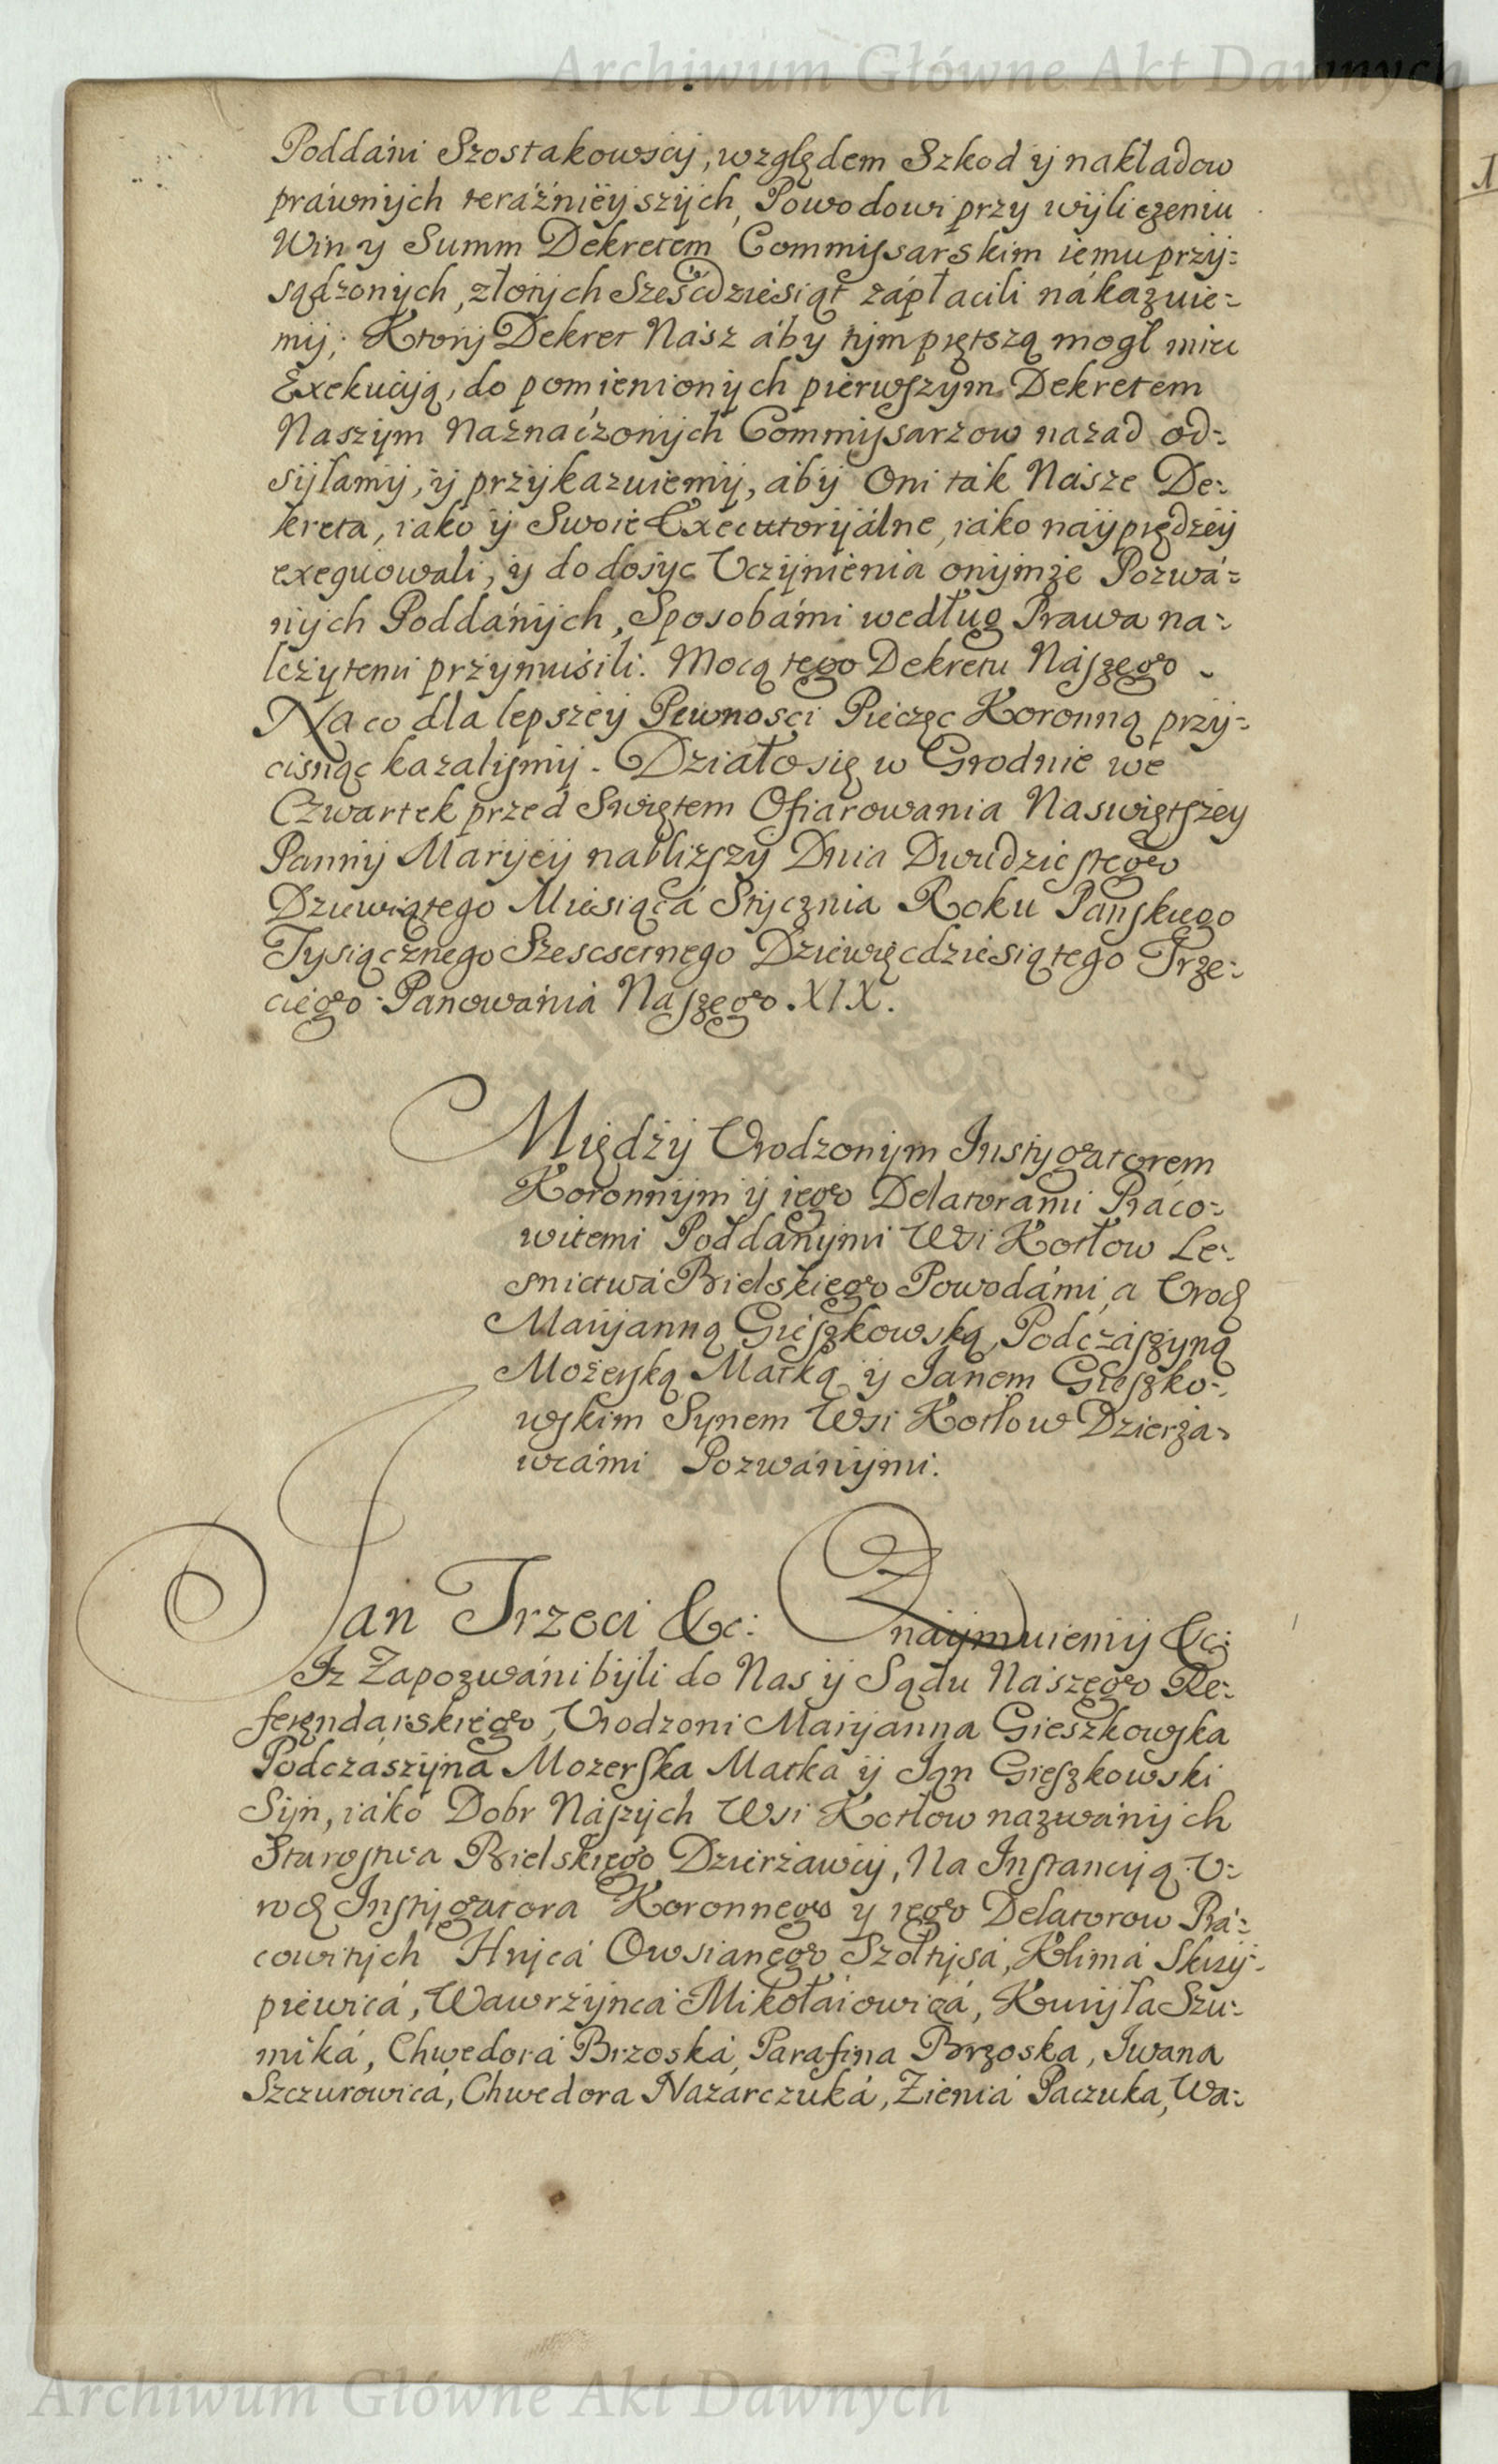 Archiwum Główne Akt Dawnych
Poddáni Szostakowscy, względem Szkod ÿ nakładow
práwnÿch teráźnieÿszÿch, Powodowi przy wÿliczeniu
Win y Summ Dekretem Commissarskim iemu przÿ:
sądzonÿch, złotÿch Sześćdziesiąt zápłacili nákazuie:
mÿ; Ktorÿ Dekret Nász áby tÿm prętszą mogł miec
Exekucÿą, do pomienionÿch pierwszym Dekretem
Naszÿm Náznáczonÿch Commissarzow nazad od:
sÿłamÿ, ÿ przÿkazuiemÿ, abÿ Oni tak Násze De:
kreta, iako ÿ Swoie Executorÿálne, iáko naÿprędzeÿ
exeguowali, ÿ do dosyc Uczÿnienia onÿmże Pozwá:
nÿch Poddánÿch, Sposobámi według Prawa na:
leżytemi przÿmusili. Mocą tego Dekretu Nászego
Na co dla lepszeÿ Pewnosci Pieczęc Koronną przÿ:
cisnąć kazalismÿ. Działo się w Grodnie we
Czwartek przed Swiętem Ofiarowania Naswiętszey
Pannÿ Marÿeÿ nabliższÿ Dnia Dwudziestego
Dziewiątego Miesiąca Stÿcznia Roku Panskiego
Tysiącznego Szescsetnego Dziewięcdziesiątego Trze:
ciego Panowánia Naszego. XIX.
Międzÿ Urodzonÿm Instygatorem
Koronnÿm ÿ iego Delatorami Praco:
witemi Poddanÿmi Wsi Kotłow Le:
snictwá Bielskiego Powodámi, a Urodz
Marÿanną Gieszkowską, Podczászyną
Mozerską Matką ÿ Janem Gieszko:
wskim Synem Wsi Kotłow Dzierża:
wcámi Pozwánÿmi.
Jan Trzeci &c: Znáÿmuiemÿ &c:
Iz Zapozwáni bÿli do Nas ÿ Sądu Nászego Re:
ferendarskiego, Urodzoni Marÿanna Gieszkowska
Podczászÿna Mozerska Matka ÿ Jan Gieszkowski
Sÿn, iáko Dobr Nászÿch Wsi Kotłow nazwánÿch
Starostwa Bielskiego Dzierżawcÿ, Na Instancyą U:
rodz Instÿgatora Koronnego y iego Delatorow Prá:
cowitÿch Hrÿcá Owsianego Szołtÿsá, Klimá Skrzÿ:
piewicá, Wawrzÿncá Mikołáiowicá, Kuryła Szu:
miká, Chwedorá Brzoská, Parafina Brzoska, Iwana
Szczurowicá, Chwedora Názárczuká, Zienia Paczuka, Wa:
Archiwum Główne Akt Dawnych